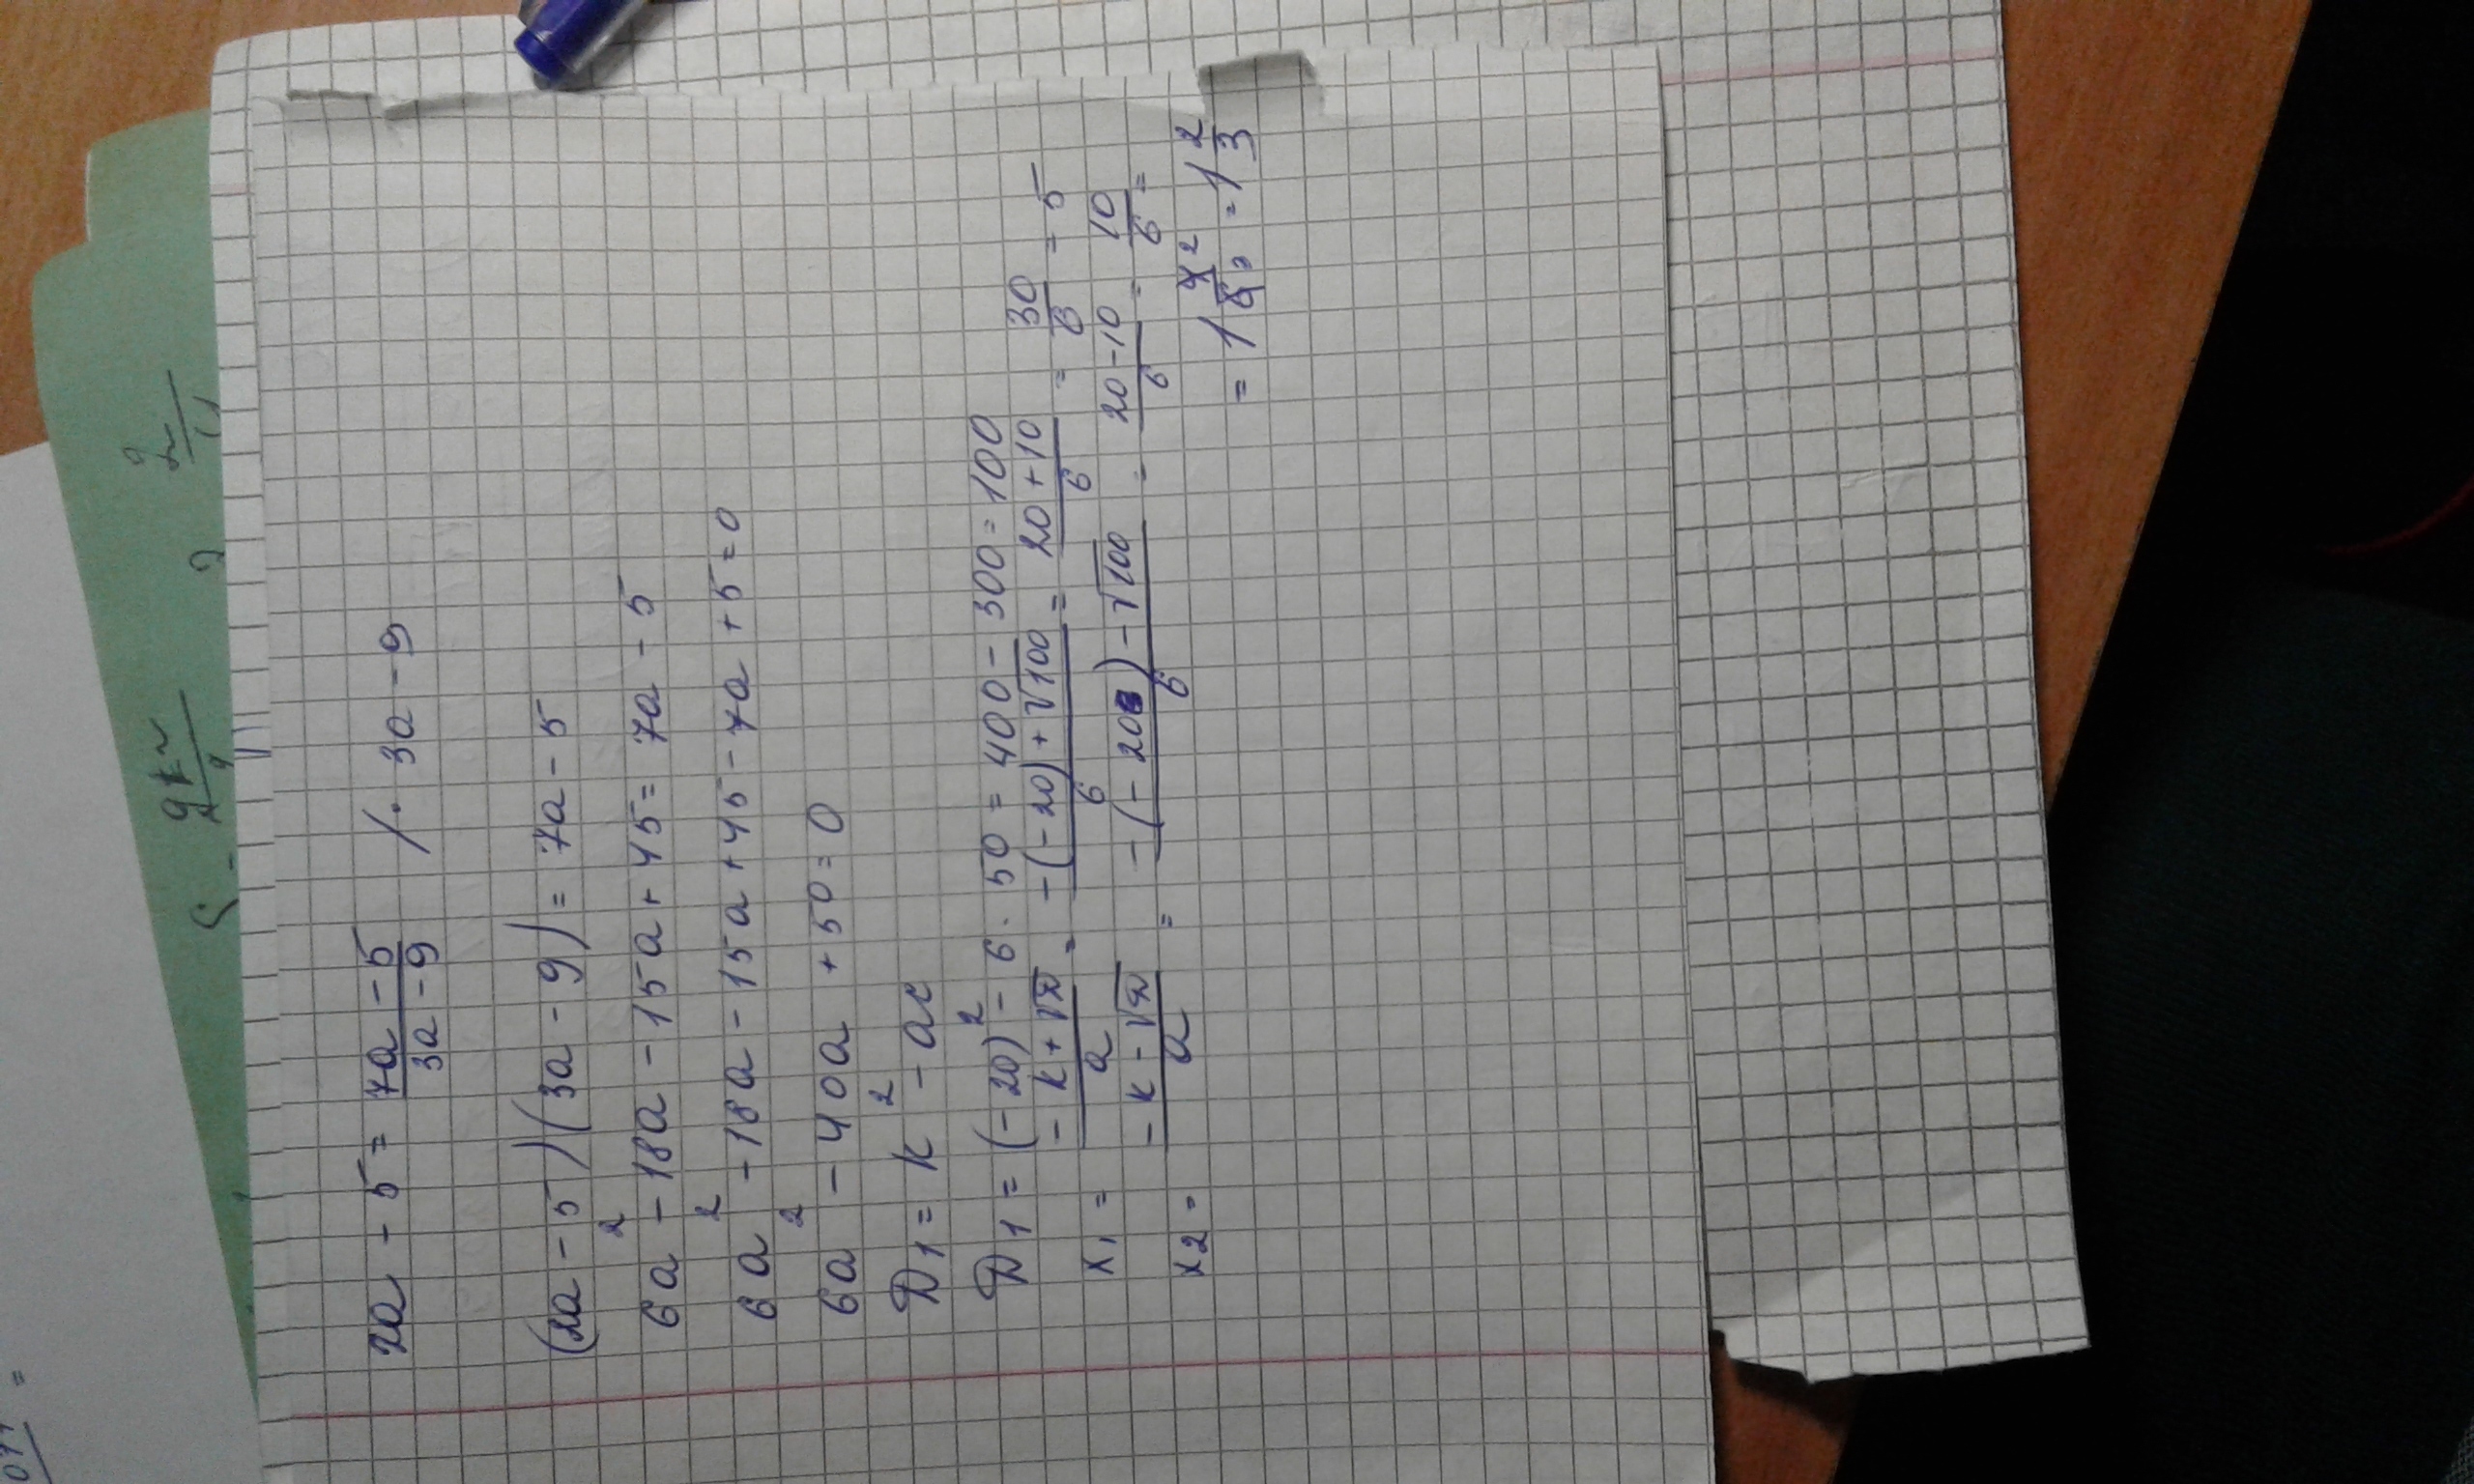 2a - 5 = \frac{7a - 5}{3a - 9} / · 3a - 9
(2a - 5)(3a - 9) = 7a - 5
6a² - 18a - 15a + 45 = 7a - 5
6a² - 18a - 15a + 45 - 7a + 5 = 0
6a² - 40a + 50 = 0
D₁ = k² - ac
D₁ = (-20)² - 6 · 50 = 400 - 300 = 100
x₁ = \frac{-k + √D}{a} = \frac{-(-20) + √100}{6} = \frac{20 + 10}{6} = \frac{30}{6} = 5
x₂ = \frac{-k - √D}{a} = \frac{-(-20) - √100}{6} = \frac{20 - 10}{6} = \frac{10}{6} =
= 1\frac{4 2}{6 3} = 1\frac{2}{3}